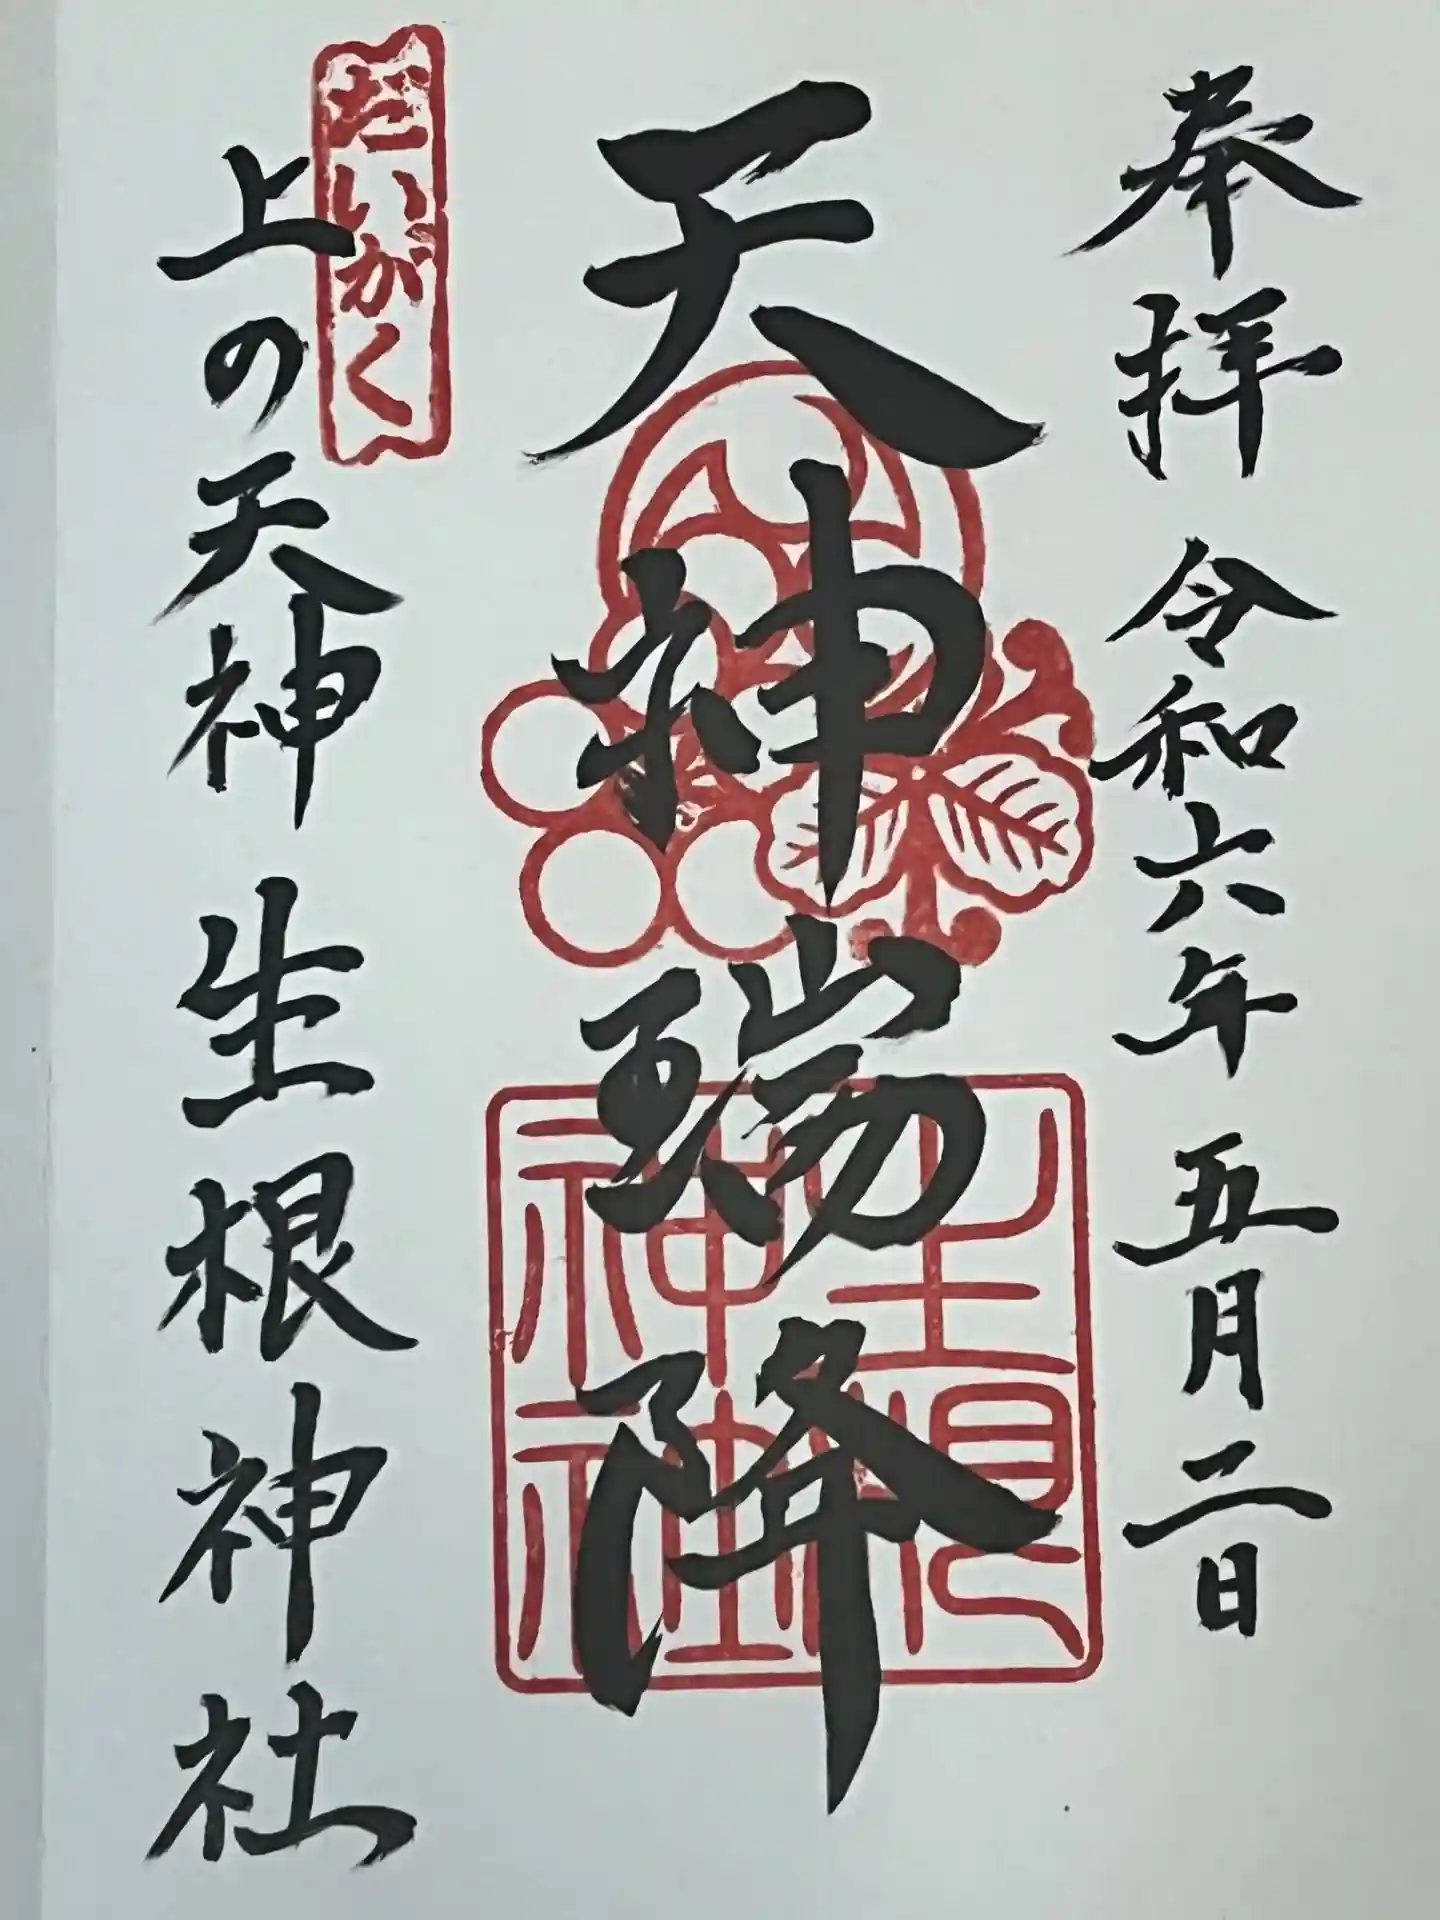 奉拝 令和六年 五月二日
天神瑞降
生根
神社
だいがく
上の天神 生根神社